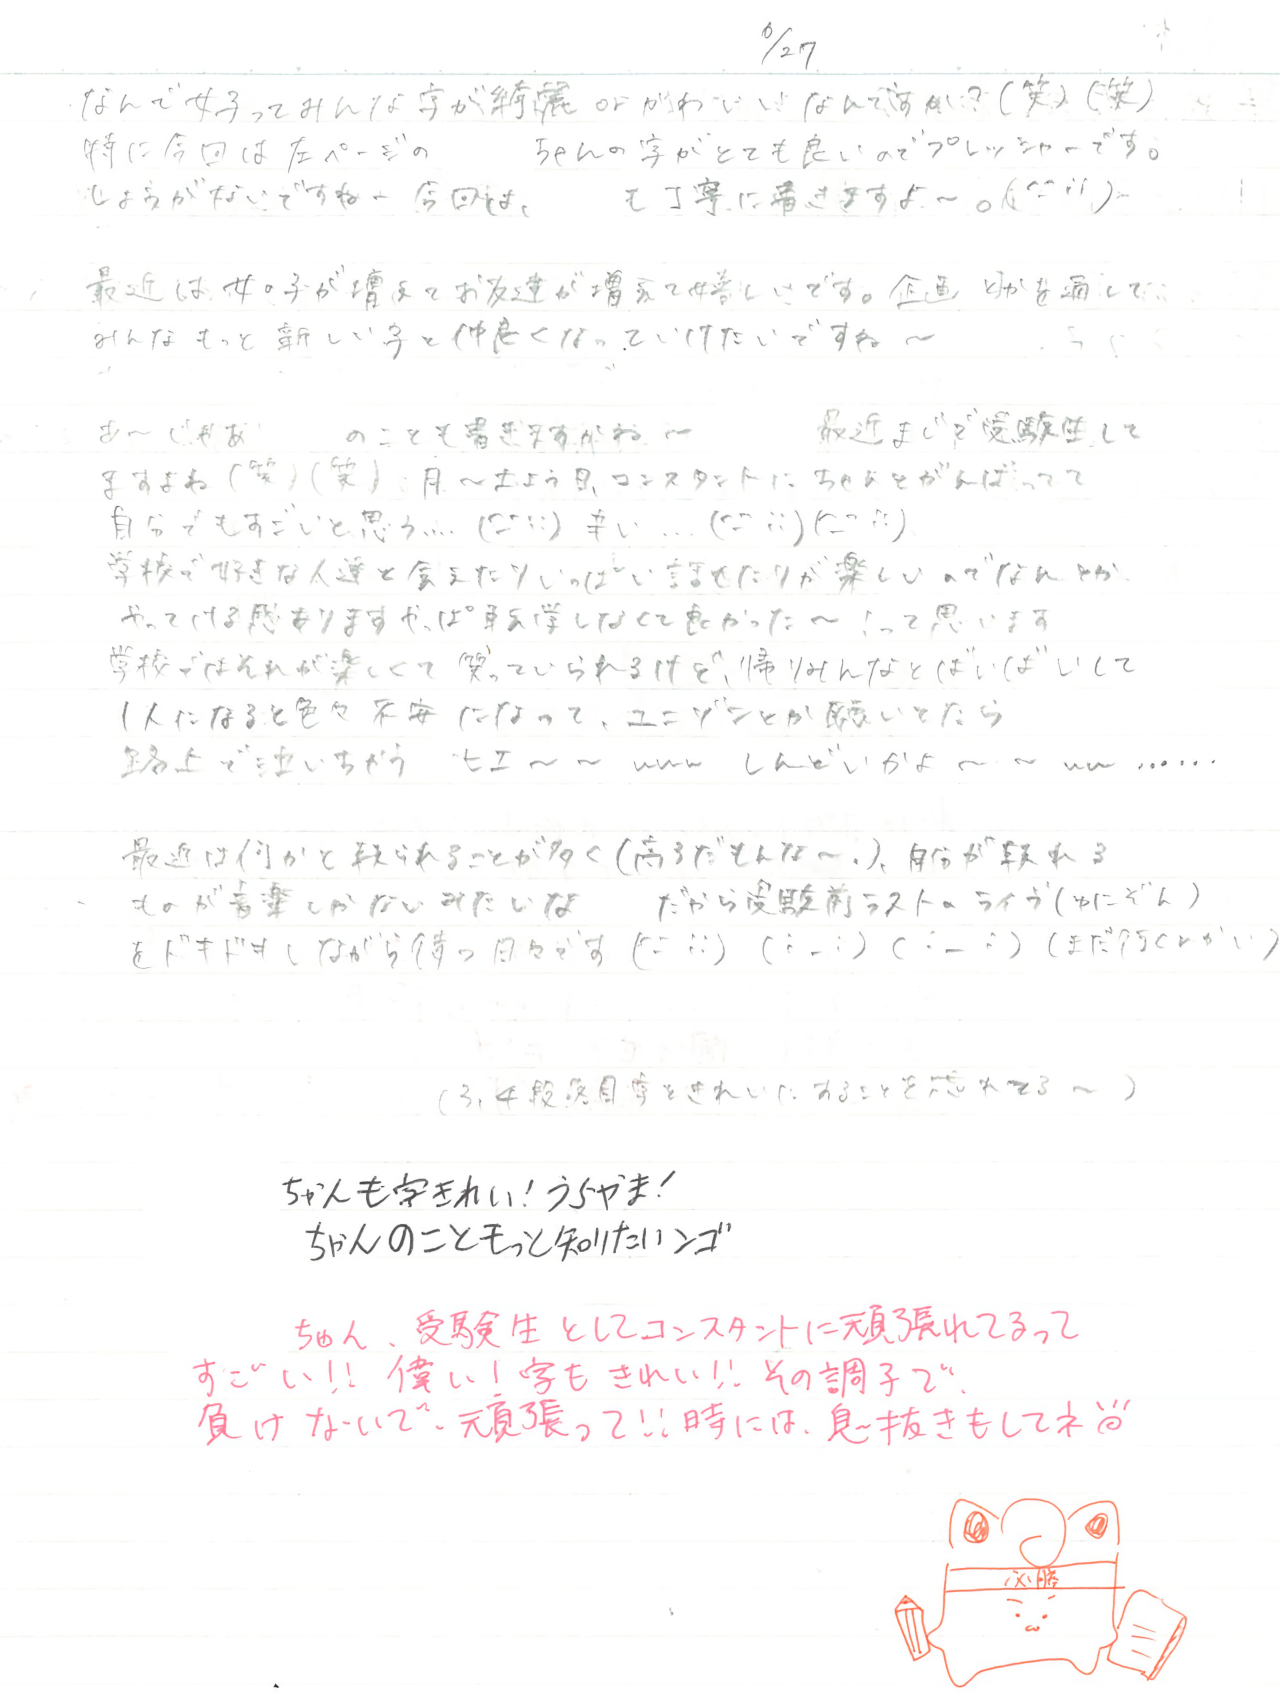 6/27
なんで女子ってみんな字が綺麗 or かわいいなんですかい?(笑)(笑)
特に今回は左ページの ちゃんの字がとても良いのでプレッシャーです。
しょうがないですねー 今回は、 も丁寧に書きますよ〜。
最近は女の子が増えてお友達が増えて嬉しいです。企画とかを通して
みんなもっと新しい子と仲良くなっていけたいですね〜
あ〜じゃあ のことも書きますかね〜 最近まじで受験生して
ますよね(笑)(笑) 月〜土よう日、コンスタントにちゃんとがんばってて
自分でもすごいと思う… 辛い…
学校で好きな人達と会えたりいっぱい話せたりが楽しいのでなんとか
やってける感ありますやっぱ転学しなくて良かった〜!って思います
学校ではそれが楽しくて笑っていられるけど、帰りみんなとばいばいして
1人になると色々不安になって、ユニゾンとか聴いてたら
路上で泣いちゃう ヒエ〜〜 www しんどいかよ〜〜 ww ……
最近は何かと頼られることが多く(高3だもんな〜。)、自分が頼れる
ものが音楽しかないみたいな だから受験前ラストのライヴ(ゆにぞん)
をドキドキしながら待つ日々です (まだ行くんかい)
(3,4段落目字をきれいにすることを忘れてる〜)
ちゃんも字きれい!うらやま!
ちゃんのこともっと知りたいンゴ
ちゃん、受験生としてコンスタントに頑張れてるって
すごい!! 偉い!字もきれい!! その調子で、
負けないで、頑張って!! 時には、息抜きもしてネ
必勝